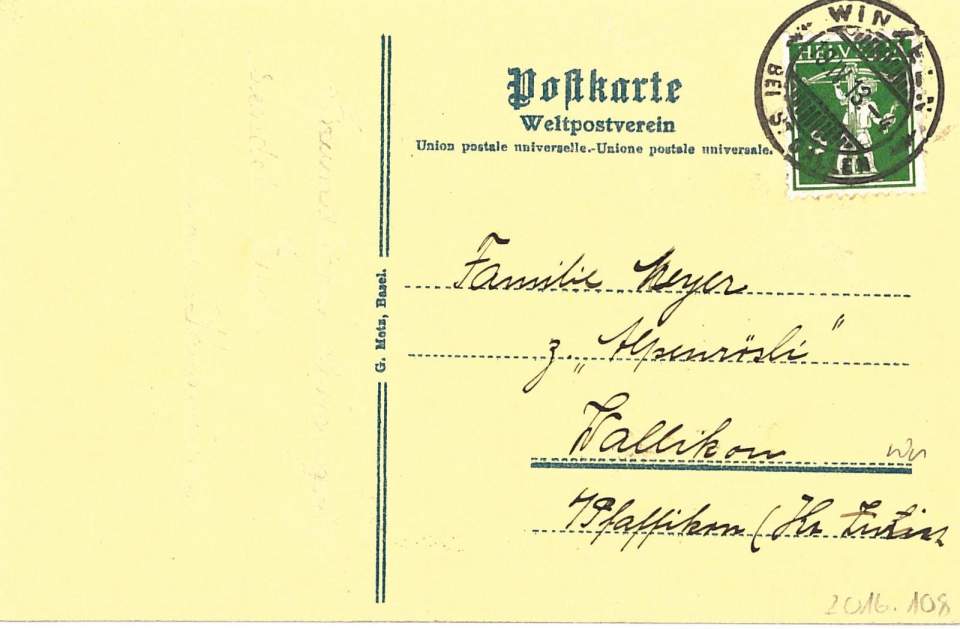 Postkarte
Weltpostverein
Union postale universelle.-Unione postale universale.
HELV
WINKEL
BEI
G. Metz, Basel.
Familie Meyer
z. „Alpenrösli“
Wallikon
Pfäffikon (Kt Zürich
2016.108